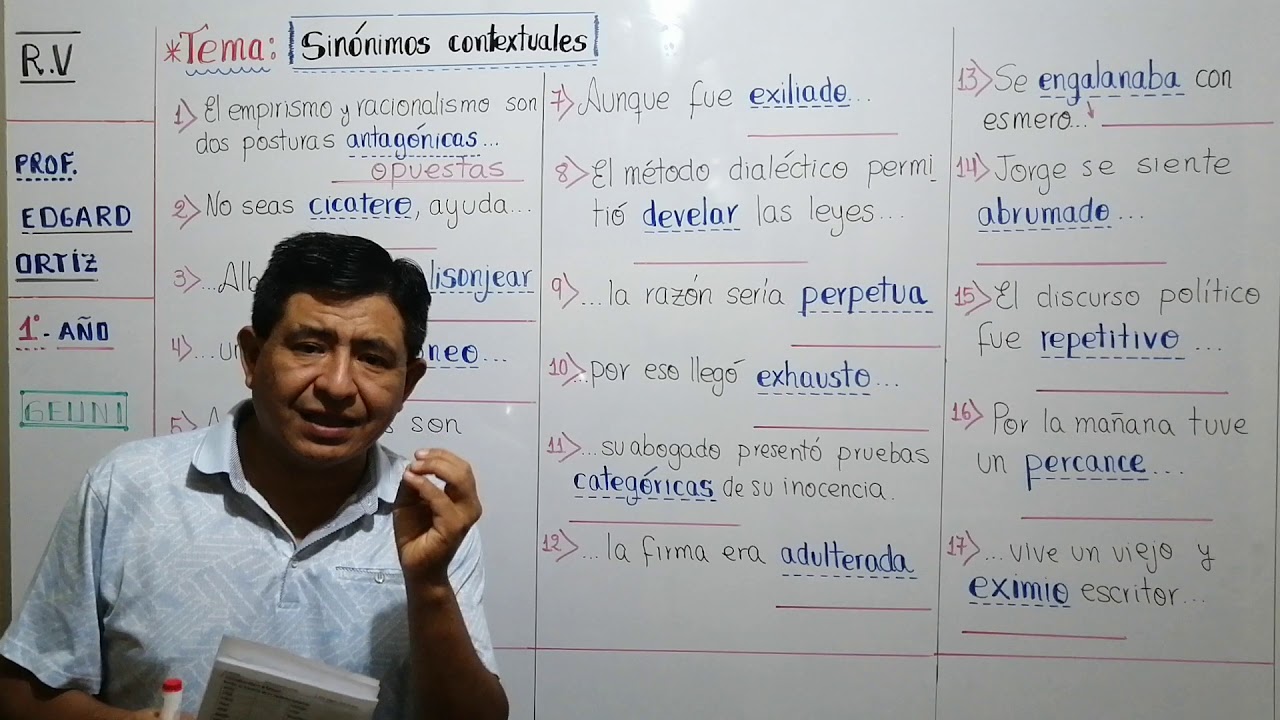 R.V
PROF.
EDGARD
ORTÍZ
1°- AÑO
GEUNI
*Tema: Sinónimos contextuales
1> El empirismo y racionalismo son
dos posturas antagónicas...
opuestas
2> No seas cicatero, ayuda...
3> ...Alb lisonjear
4> ...un neo...
5> A s son
7> Aunque fue exiliado...
8> El método dialéctico permi
tió develar las leyes...
9> ...la razón sería perpetua
10> ...por eso llegó exhausto...
11> ...su abogado presentó pruebas
categóricas de su inocencia.
12> ...la firma era adulterada
13> Se engalanaba con
esmero...
14> Jorge se siente
abrumado...
15> El discurso político
fue repetitivo ...
16> Por la mañana tuve
un percance...
17> ...vive un viejo y
eximio escritor...